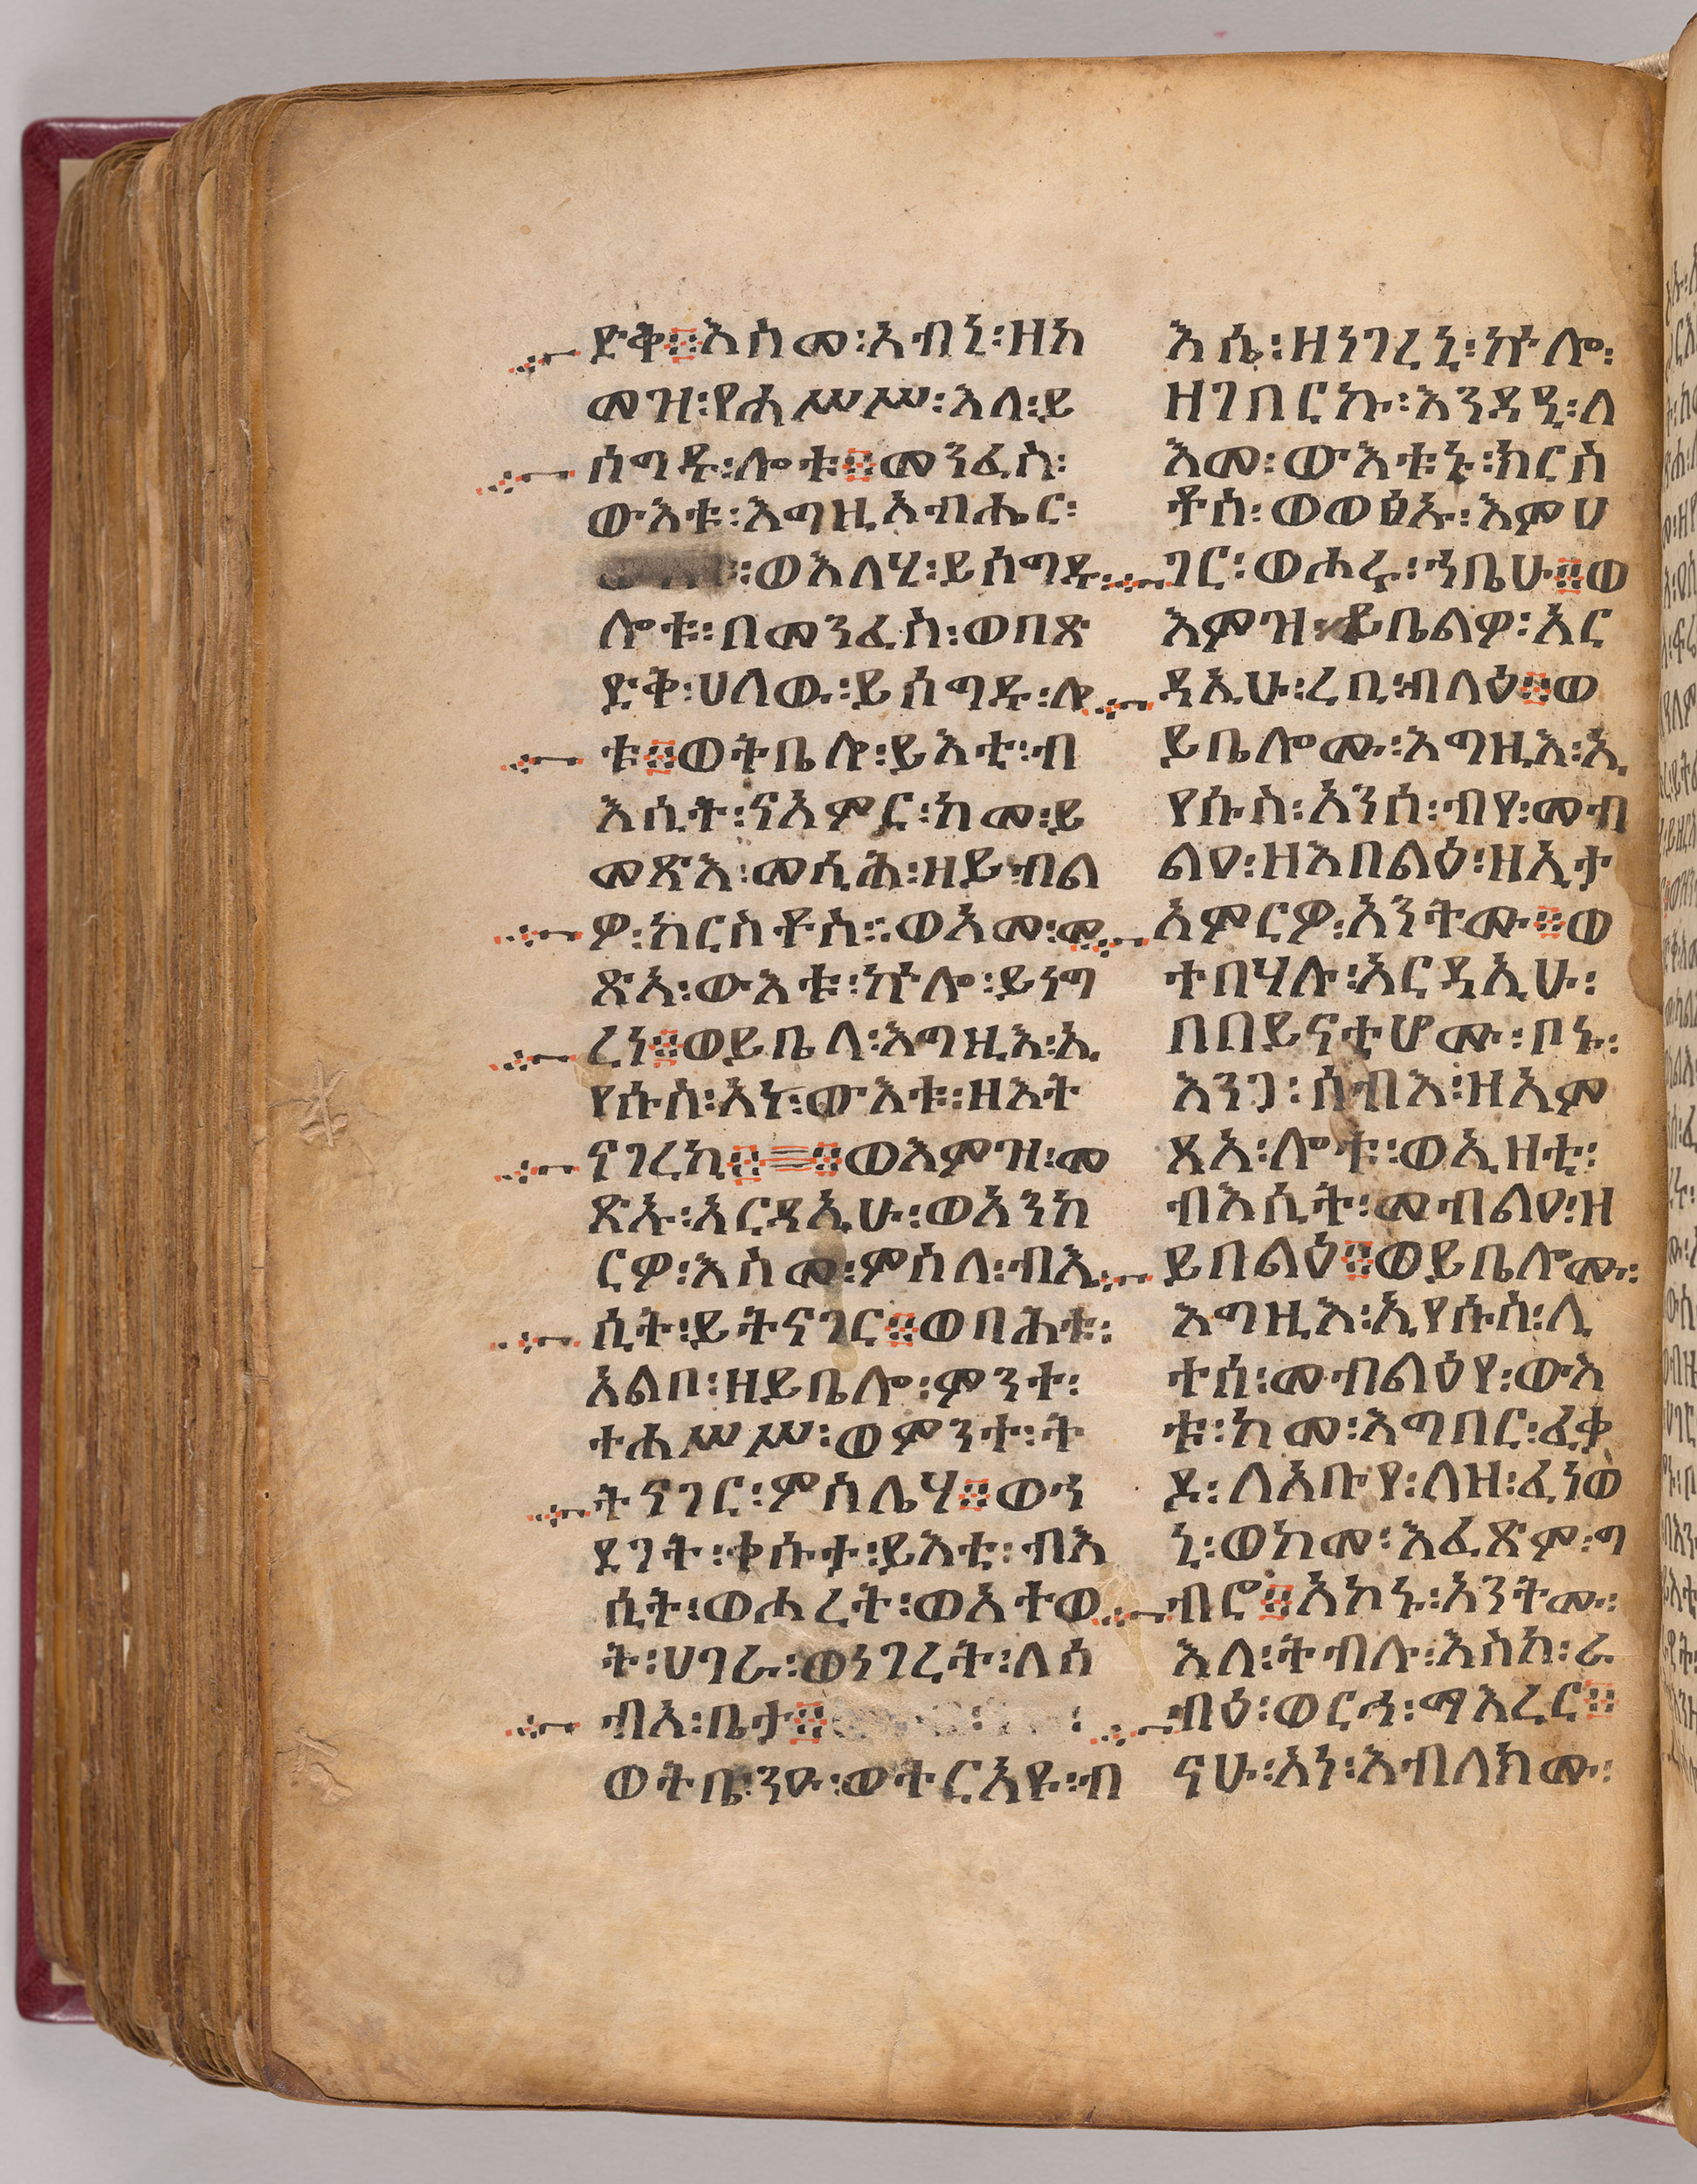 ድቅ፨እስመ፡አብኒ፡ዘከ
መዝ፡የሐሥሥ፡እለ፡ይ
ሰግዱ፡ሎቱ፨መንፈስ፡
ውእቱ፡እግዚአብሔር፡
፡ወእለሂ፡ይሰግዱ፡
ሎቱ፡በመንፈስ፡ወበጽ
ድቅ፡ሀለወ፡ይሰግዱ፡ሎ
ቱ፨ወትቤሎ፡ይእቲ፡ብ
እሲት፡ናአምር፡ከመ፡ይ
መጽእ፡መሲሕ፡ዘይብል
ዎ፡ክርስቶስ፡፡ወአመ፡መ
ጽአ፡ውእቱ፡ኵሎ፡ይነግ
ረነ፨ወይቤላ፡እግዚእ፡ኢ
የሱስ፡አነ፡ውእቱ፡ዘእት
ናገረኪ፨፨ወእምዝ፡መ
ጽኡ፡አርዳኢሁ፡ወአንከ
ርዎ፡እስመ፡ምስለ፡ብእ
ሲት፡ይትናገር፨ወበሕቱ፡
አልቦ፡ዘይቤሎ፡ምንተ፡
ተሐሥሥ፡ወምንተ፡ት
ትናገር፡ምስሌሃ፨ወኀ
ደገት፡ቀሱታ፡ይእቲ፡ብእ
ሲት፡ወሐረት፡ወአተወ
ት፡ሀገራ፡ወነገረት፡ለሰ
ብአ፡ቤታ፨
ወትቤ፡ንዑ፡ወትርአዩ፡ብ
እሴ፡ዘነገረኒ፡ኵሎ፡
ዘገበርኩ፡እንዳዒ፡ለ
እመ፡ውእቱኑ፡ክርስ
ቶስ፡ወወፅኡ፡እምሀ
ገር፡ወሐሩ፡ኀቤሁ፨ወ
እምዝ፡ይቤልዎ፡አር
ዳኢሁ፡ረቢ፡ብላዕ፨ወ
ይቤሎሙ፡እግዚእ፡ኢ
የሱስ፡አንሰ፡ብየ፡መብ
ልዐ፡ዘእበልዕ፡ዘኢታ
አምርዎ፡አንትሙ፨ወ
ተበሃሉ፡አርዳኢሁ፡
በበይናቲሆሙ፡ቦኑ፡
እንጋ፡ሰብእ፡ዘአም
ጽአ፡ሎቱ፡ወኢዘቲ፡
ብእሲት፡መብልዐ፡ዘ
ይበልዕ፨ወይቤሎሙ፡
እግዚእ፡ኢየሱስ፡ሊ
ተሰ፡መብልዕየ፡ውእ
ቱ፡ከመ፡እግበር፡ፈቃ
ዶ፡ለአቡየ፡ለዘ፡ፈነወ
ኒ፡ወከመ፡እፈጽም፡ግ
ብሮ፨አኮኑ፡አንትሙ፡
እለ፡ትብሉ፡እስከ፡ራ
ብዕ፡ወርኅ፡ማእረር፨
ናሁ፡አነ፡እብለክሙ፡